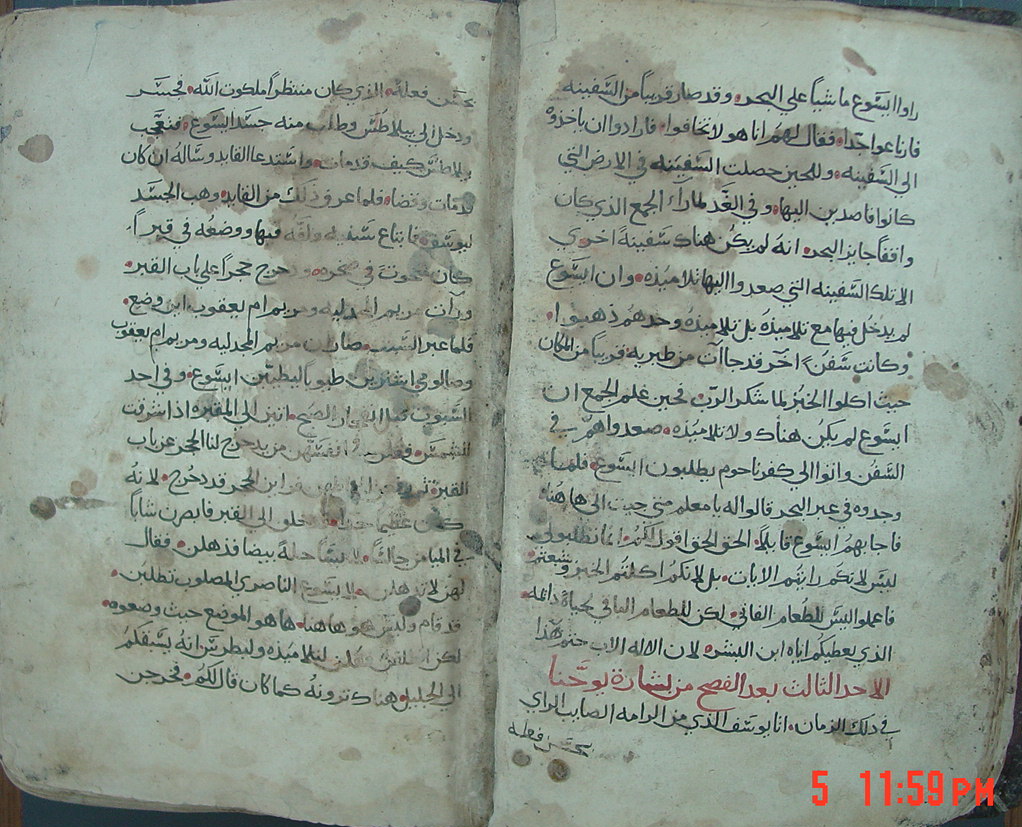 راوا ايسوع ماشياً علي البحر. وقد صار قريباً من السفينه
فارتاعوا جداً. فقال لهم انا هو لا تخافوا. فارادوا ان ياخذوه
الي السفينه. وللحين حصلت السفينه في الارض التي
كانوا قاصدين اليها. وفي الغد لما راي الجمع الذي كان
واقفاً جايز البحر. انه لم يكن هناك سفينةً اخري
الا تلك السفينه التي صعدوا اليها تلاميذه. وان ايسوع
لم يدخل فيها مع تلاميذه بل تلاميذه وحدهم ذهبوا.
وكانت سفنٌ اخر قد جاات من طبريه قريباً من المكان
حيث اكلوا الخبز لما شكر الرب. فحين علم الجمع ان
ايسوع لم يكن هناك ولا تلاميذه. صعدوا هم في
السفن واتوا الي كفرناحوم يطلبون ايسوع. فلما
وجدوه في عبر البحر قالوا له يا معلم متي جيت الي هاهنا
فاجابهم ايسوع قايلاً. الحق الحق اقول لكم. انما تطلبوني
ليس لانكم رايتم الايات. بل لانكم اكلتم الخبز وشبعتم
فاعملوا ليس للطعام الفاني. لكن للطعام الباقي لحياة دايمه.
الذي يعطيكم اياه ابن البشره لان الاله الاب ختم هذا
الاحد الثالث بعد الفصح من بشارة يوحنا
في ذلك الزمان. اتا يوسف الذي من الرامه الصايب الراي
يحسن فعله
يحسن فعله. الذي كان منتظراً ملكوت الله. فجسر
ودخل الي بيلاطس وطلب منه جسد ايسوع. فتعجب
بيلاطس كيف قد مات. واستدعا القايد وساله ان كان
قد مات وقضا. فلما عرف ذلك من القايد. وهب الجسد
ليوسف. فابتاع سفينه ولفه فيها ووضعه في قبراً.
كان منحوت في صخره. ودحرج حجراً علي باب القبر.
ورات مريم المجدليه ومريم ام يعقوب اين وضع.
فلما عبر السبت. صارت مريم المجدليه ومريم ام يعقوب
وصالومي اشترين طيوباً ليطيبن ايسوع. وفي احد
السبوت اتين الي المقبره اذ اشرقت
الشمس. فقلن في انفسهن من يدحرج لنا الحجر عن باب
القبر. الحجر قد دحرج. لانه
كان عظيماً جداً. دخلن الي القبر فابصرن شاباً
في الميامن جالساً. لابساً حلةً بيضا فذهلن. فقال
لهن لا تذهلن. ايسوع الناصري المصلوب تطلبن.
قد قام وليس هو هاهنا. ها هو الموضع حيث وضعوه.
لكن انطلقن وقلن لتلاميذه ولبطرس انه يسبقكم
الي الجليل. هناك ترونه كما كان قال لكم. فخرجن
5 11:59 PM